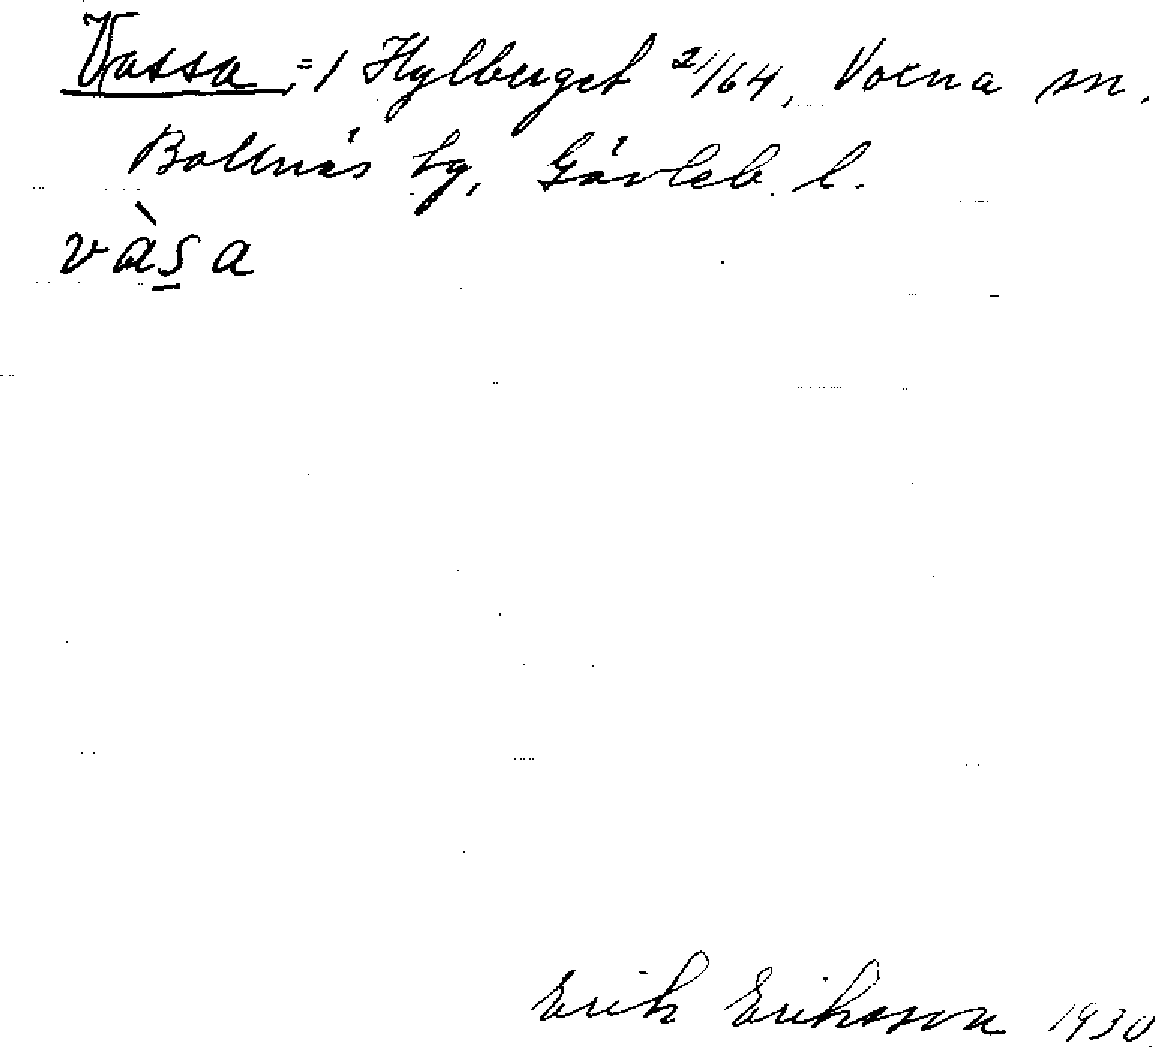 Vassa, =1 Hylberget 2/164, Voxna sn.
Bollnäs tg, Gävleb. l.
vàs̲a
Erik Eriksson 1930